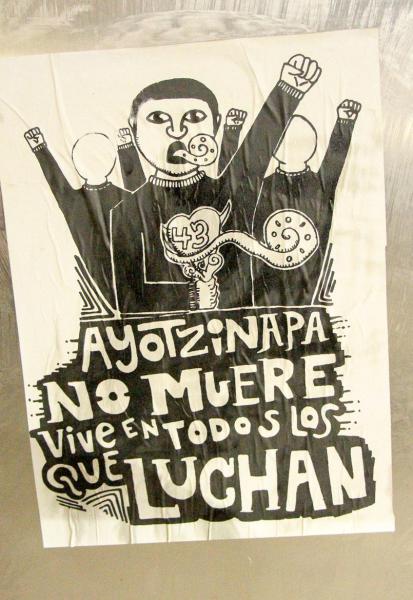 43
AYOTZiNAPA
NO MUERE
ViVe EN TODOS LOS
QUE LUCHAN